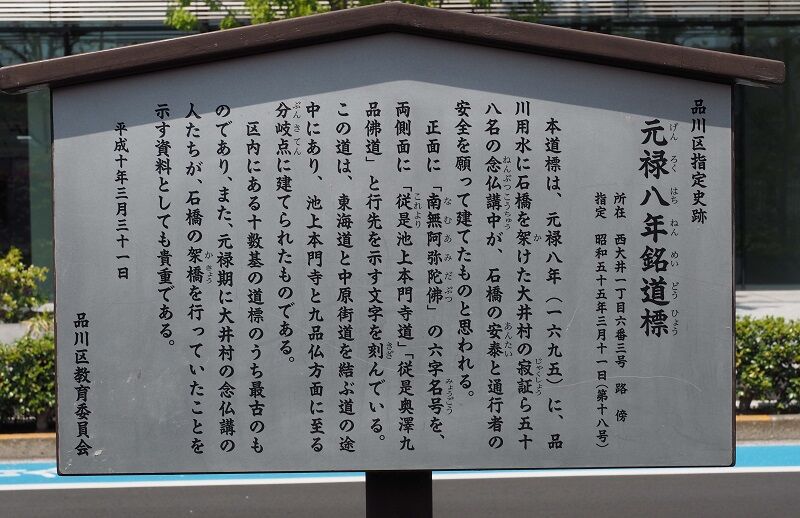 品川区指定史跡
元禄八年銘道標
げんろくはちねんめいどうひょう
所在 西大井一丁目六番三号 路傍
指定 昭和五十五年三月十一日(第十八号)
本道標は、元禄八年(一六九五)に、品
川用水に石橋を架けた大井村の寂証ら五十
か じゃくしょう
八名の念仏講中が、石橋の安泰と通行者の
ねんぶつこうちゅう あんたい
安全を願って建てたものと思われる。
正面に「南無阿弥陀佛」の六字名号を、
なむあみだぶつ みょうごう
両側面に「従是池上本門寺道」「従是奥澤九
これより
品佛道」と行先を示す文字を刻んでいる。
きざ
この道は、東海道と中原街道を結ぶ道の途
中にあり、池上本門寺と九品仏方面に至る
分岐点に建てられたものである。
ぶんきてん
区内にある十数基の道標のうち最古のも
のであり、また、元禄期に大井村の念仏講の
人たちが、石橋の架橋を行っていたことを
かきょう
示す資料としても貴重である。
平成十年三月三十一日
品川区教育委員会